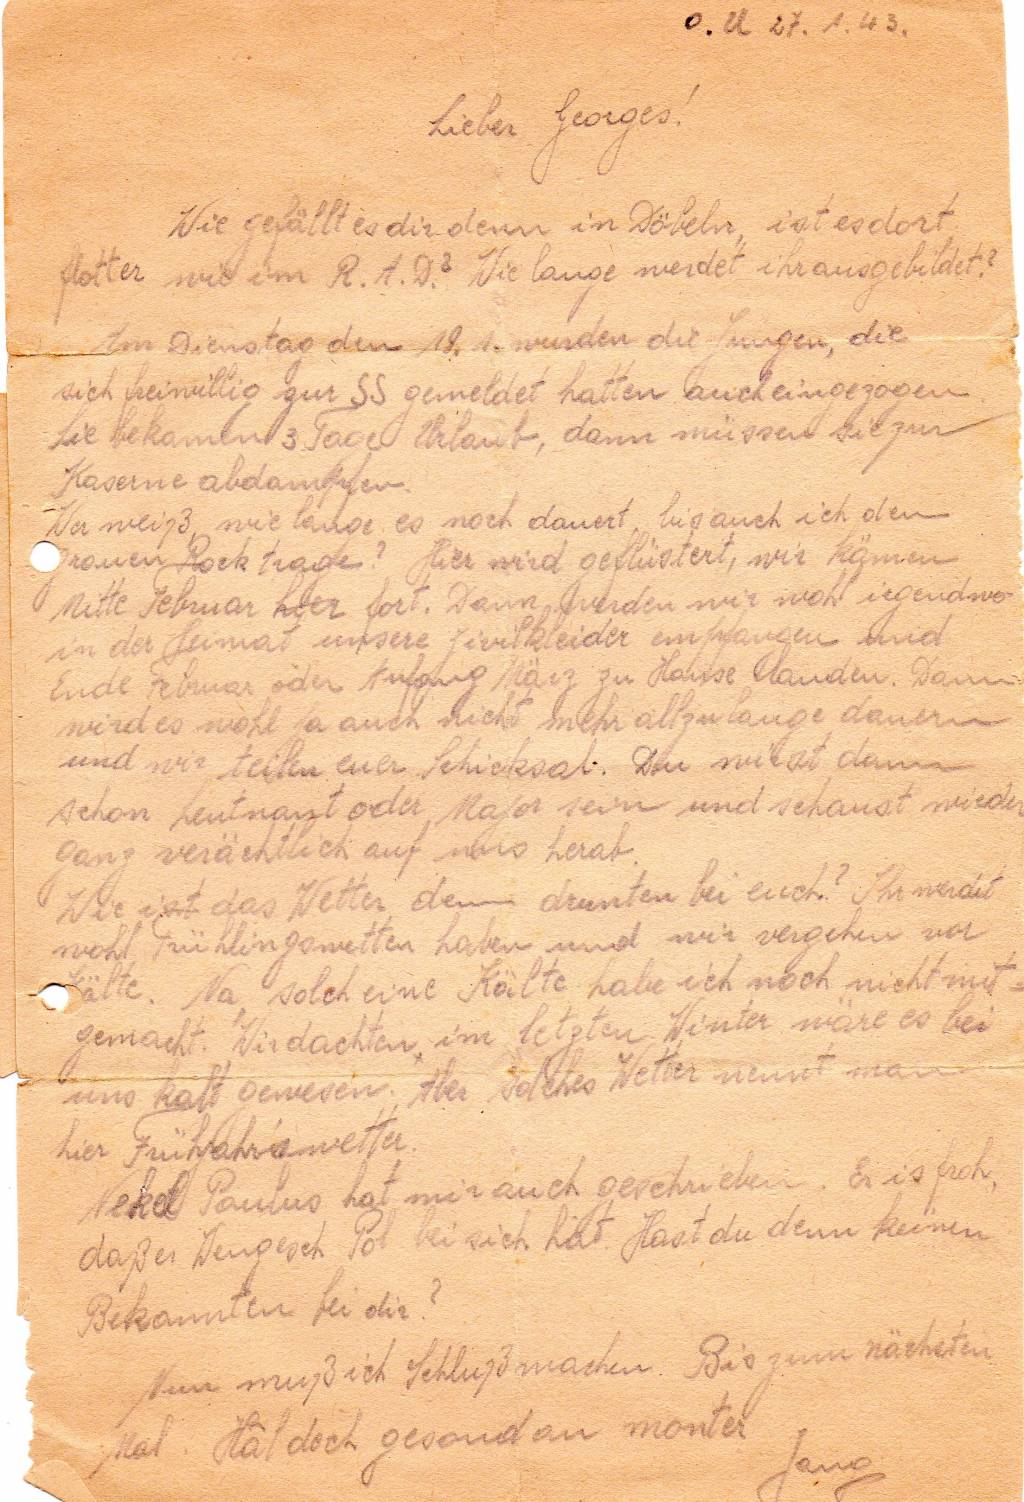 O.U 27.1.43.
Lieber Georges!
Wie gefällt es dir denn in Döbeln, ist es dort
flotter wie im R.A.D.? Wie lange werdet ihr ausgebildet?
Am Dienstag den 19.1. wurden die Jungen, die
sich freiwillig zur SS gemeldet hatten auch eingezogen.
Sie bekamen 3 Tage Urlaub, dann müssen sie zur
Kaserne abdampfen.
Wer weiß, wie lange es noch dauert, bis auch ich den
grauen Rock trage? Hier wird geflüstert, wir kämen
Mitte Februar hier fort. Dann werden wir wohl irgendwo
in der Heimat unsere Zivilkleider empfangen und
Ende Februar oder Anfang März zu Hause landen. Dann
wird es wohl ja auch nicht mehr allzulange dauern
und wir teilen euer Schicksal. Du wirst dann
schon Leutnant oder Major sein und schaust wieder
ganz verächtlich auf uns herab.
Wie ist das Wetter denn drunten bei euch? Ihr werdet
wohl Frühlingswetter haben und wir vergehen vor
Kälte. Na, solch eine Kälte habe ich noch nicht mit=
gemacht. Wir dachten, im letzten Winter wäre es bei
uns kalt gewesen. Aber solches Wetter nennt man
hier Frühjahrswetter.
Nekel Paulus hat mir auch geschrieben. Er is froh,
daß er Wengesch Pol bei sich hat. Hast du denn keinen
Bekannten bei dir?
Nun muß ich Schluß machen. Bis zum nächsten
Mal. Hâl dech gesond an monter
Jang